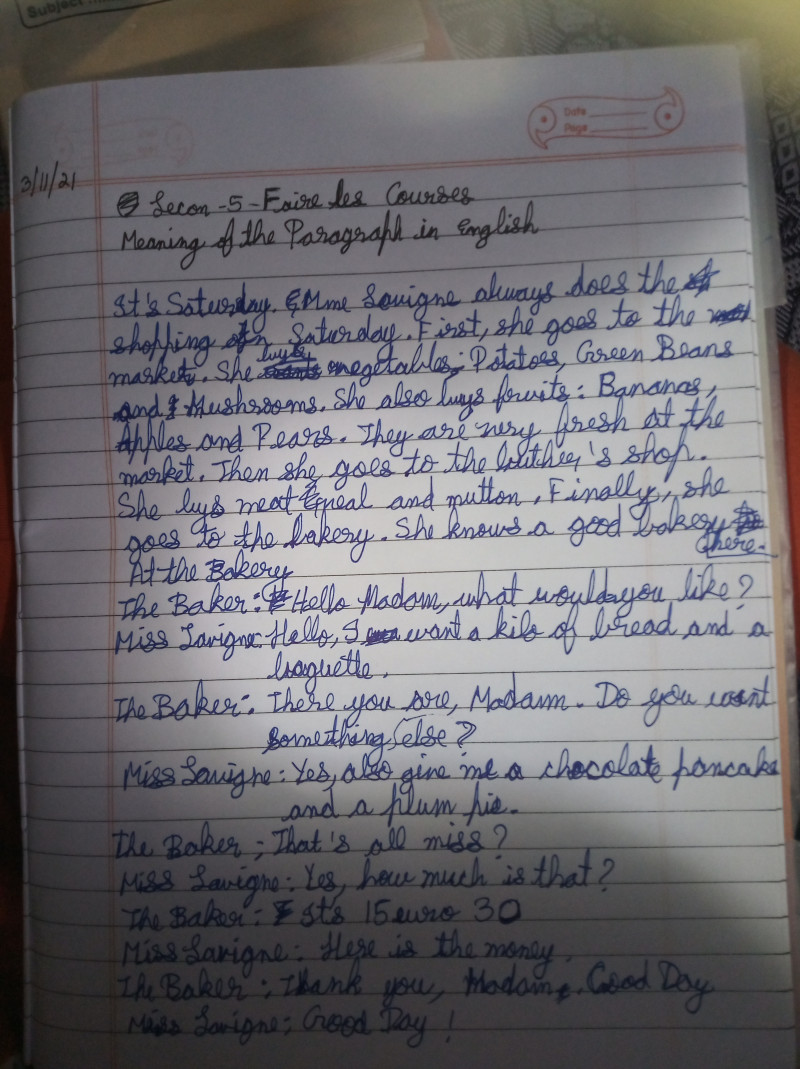 Subject
Date
Page
3/11/21
Lecon -5 - Faire les Courses
Meaning of the Paragraph in English
It's Saturday. Mme Lavigne always does the
shopping on Saturday. First, she goes to the
market. She buys vegetables: Potatoes, Green Beans
and Mushrooms. She also buys fruits: Bananas,
Apples and Pears. They are very fresh at the
market. Then she goes to the butcher's shop.
She buys meat: veal and mutton. Finally, she
goes to the bakery. She knows a good bakery
there.
At the Bakery
The Baker: Hello Madam, what would you like?
Miss Lavigne: Hello, I want a kilo of bread and a
baguette.
The Baker: There you are, Madam. Do you want
something else?
Miss Lavigne: Yes, also give me a chocolate pancake
and a plum pie.
The Baker: That's all miss?
Miss Lavigne: Yes, how much is that?
The Baker: It's 15 euro 30
Miss Lavigne: Here is the money.
The Baker: Thank you, Madam. Good Day
Miss Lavigne: Good Day!